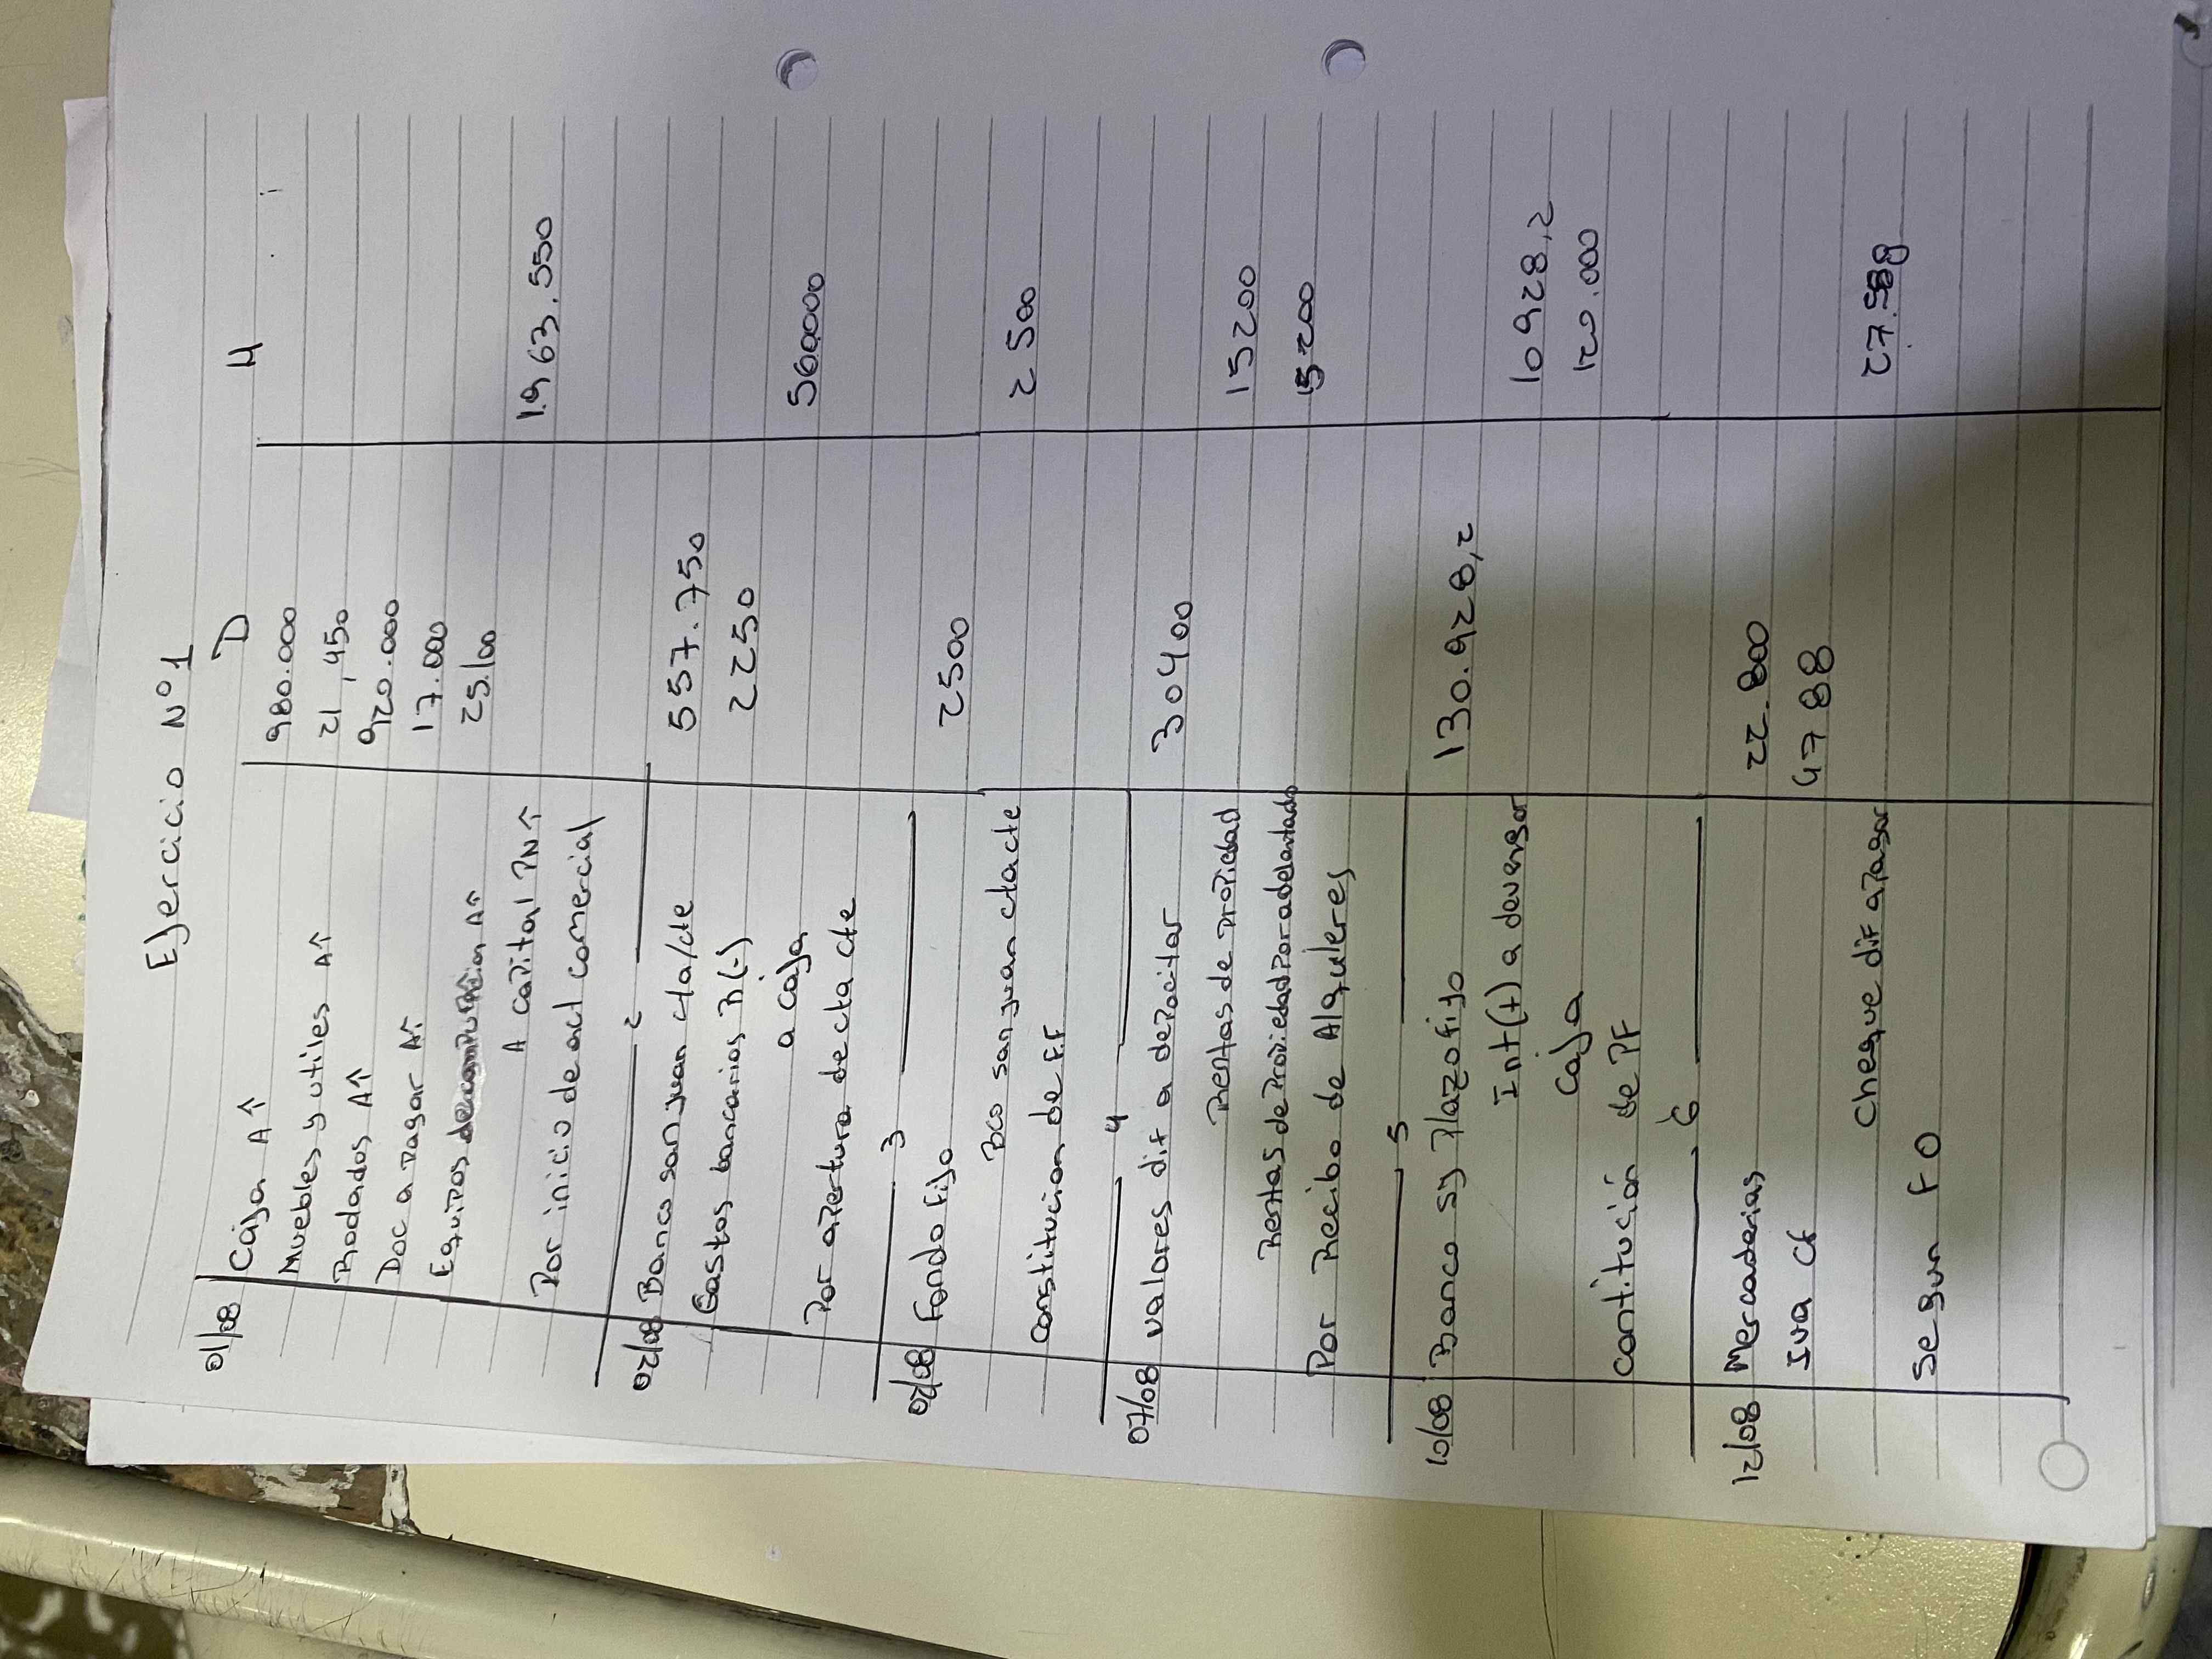 Ejercicio N°1
D H
01/08 Caja A↑ 980.000
Muebles y utiles A↑ 21,450
Rodados A↑ 920.000
Doc a Pagar A↑ 17.000
Equipos de computación A↑ 25.100
A capital PN↑ 1.963.550
Por inicio de act comercial
2
02/08 Banco san juan cta/cte 557.750
Gastos bancarios R(-) 2250
a caja 560000
Por apertura de cta cte
3
02/08 Fondo Fijo 2500
Bco san juan cta cte 2500
Constitucion de F.F
4
07/08 Valores dif a depocitar 30400
Rentas de propiedad 15200
Rentas de Propiedad Por adelantado 15200
Por Recibo de Alquileres
5
10/08 Banco sj Plazo Fijo 130.928,2
Int(+) a devengar 10928,2
Caja 120.000
contitución de PF
6
12/08 Mercaderias 22.800
Iva CF 4788
Cheque dif a pagar 27.588
Segun FO